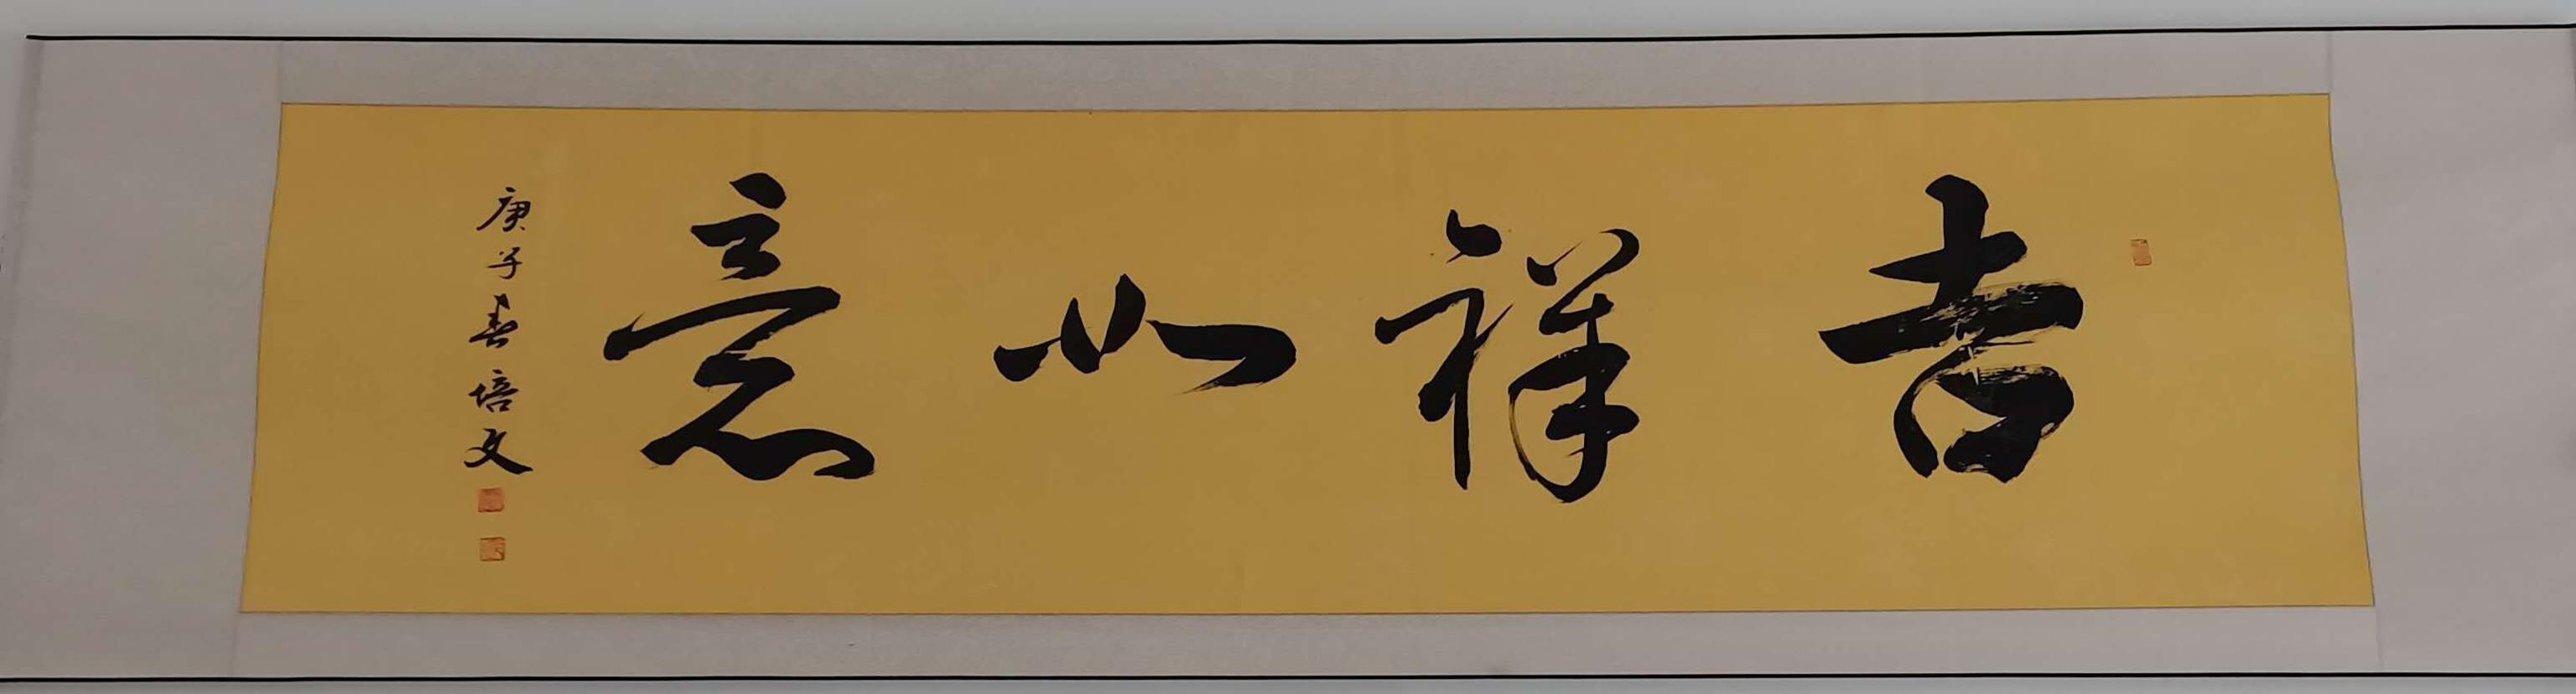 吉祥如意
庚子春培文